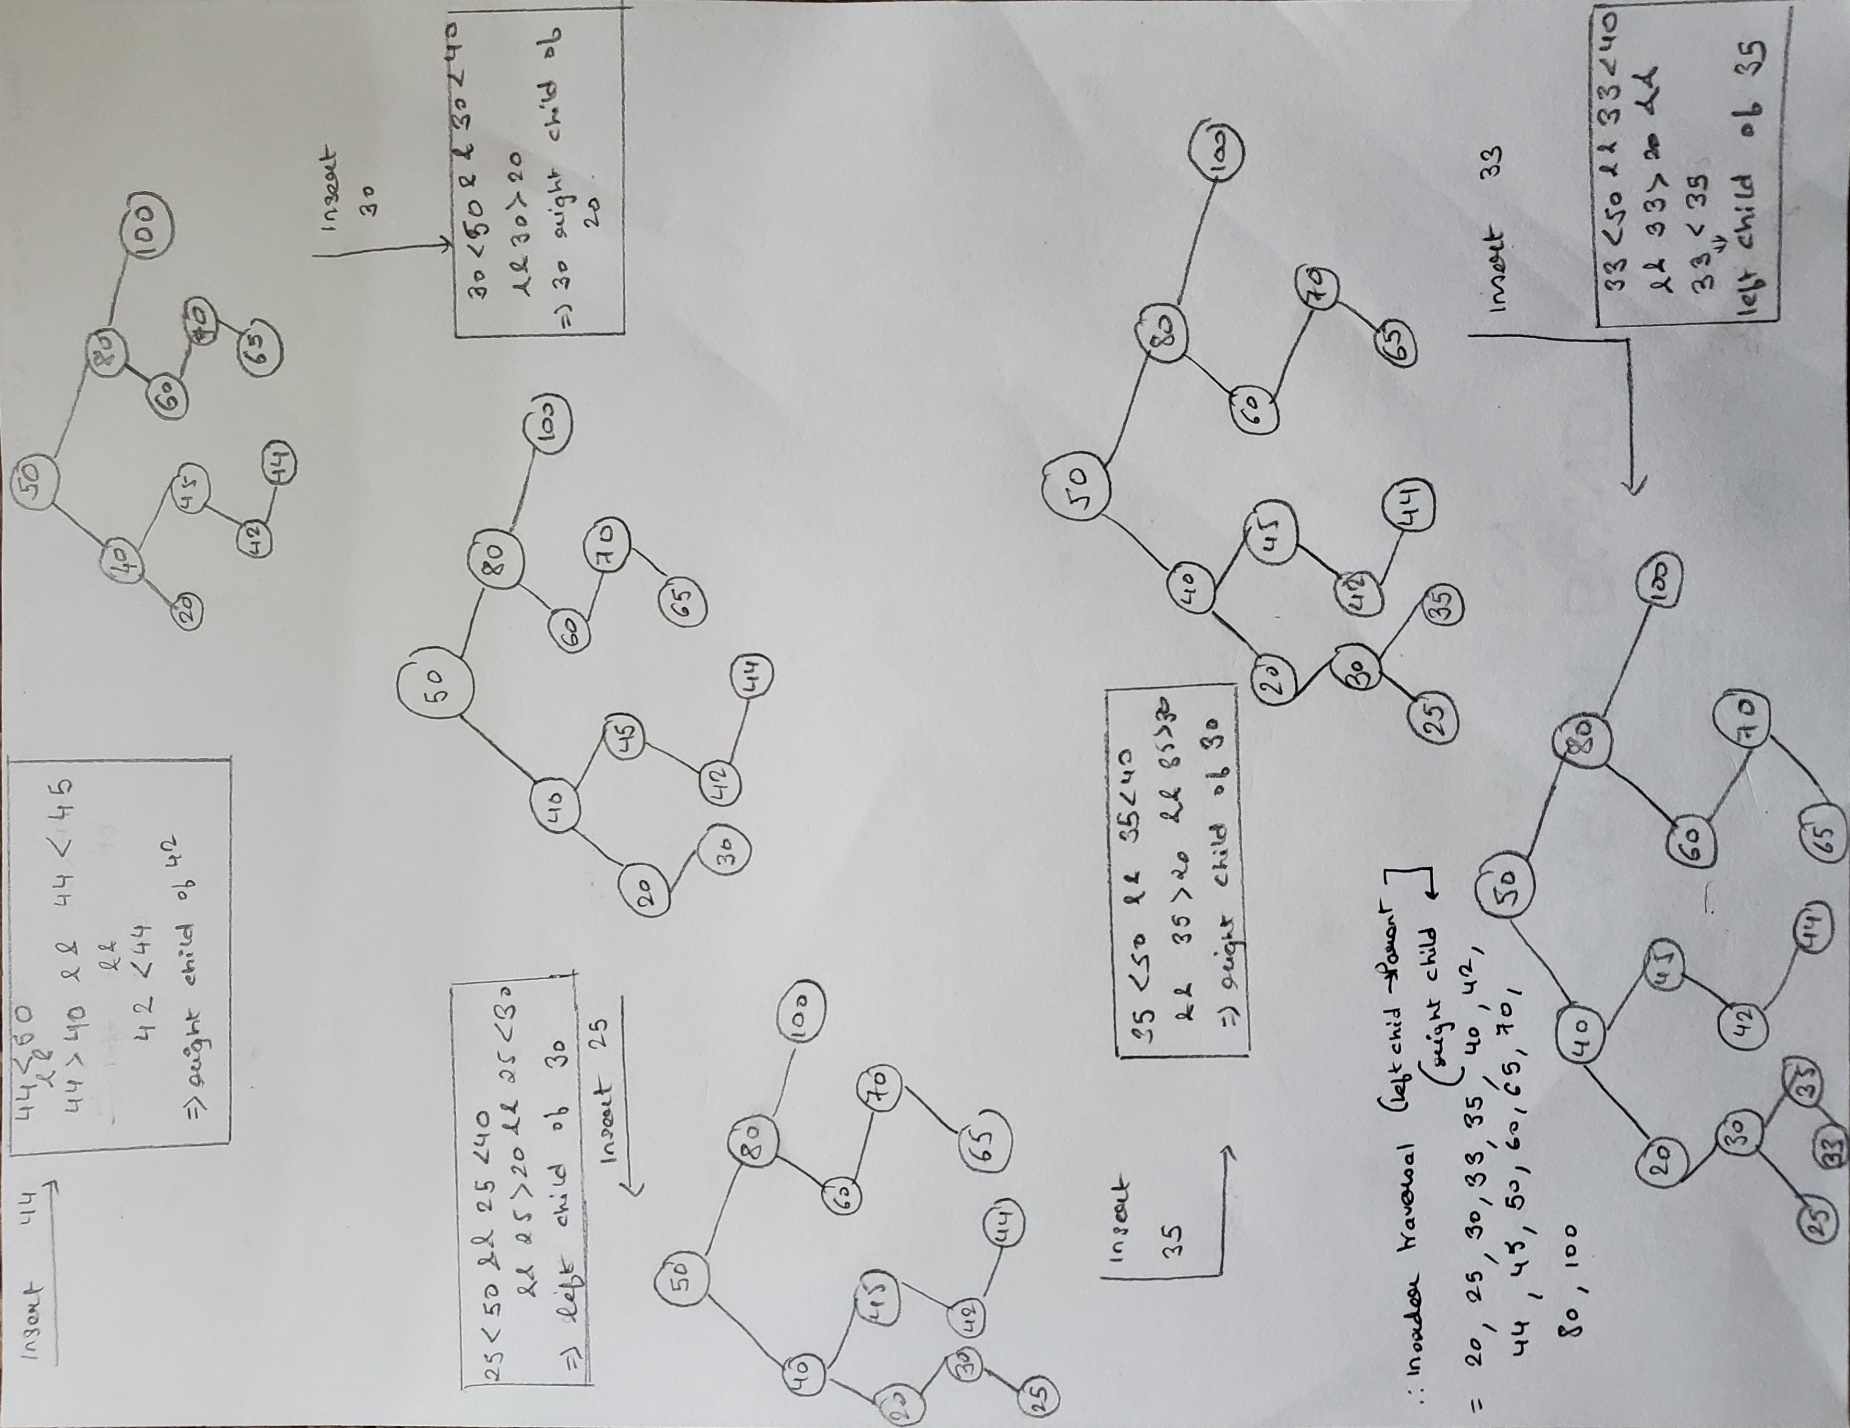 Insert 44
44<50
&&
44>40 && 44<45
&&
42<44
=> right child of 42
50
40
80
20
45
60
100
42
70
44
65
Insert
30
30<50 & & 30<40
&& 30>20
=> 30 right child of
20
50
40
80
20
45
60
100
30
42
70
44
65
Insert 25
25<50 && 25<40
&& 25>20 && 25<30
=> left child of 30
50
40
80
20
45
60
100
30
42
70
25
44
65
Insert
35
35<50 && 35<40
&& 35>20 && 35>30
=> right child of 30
50
40
80
20
45
60
100
30
42
70
25
35
44
65
Insert 33
33<50 && 33<40
&& 33>20 &&
33<35
left child of 35
50
40
80
20
45
60
100
30
42
70
25
35
44
65
33
∴ Inorder traversal (left chid → Parent
(right child
= 20, 25, 30, 33, 35, 40, 42,
44, 45, 50, 60, 65, 70,
80, 100